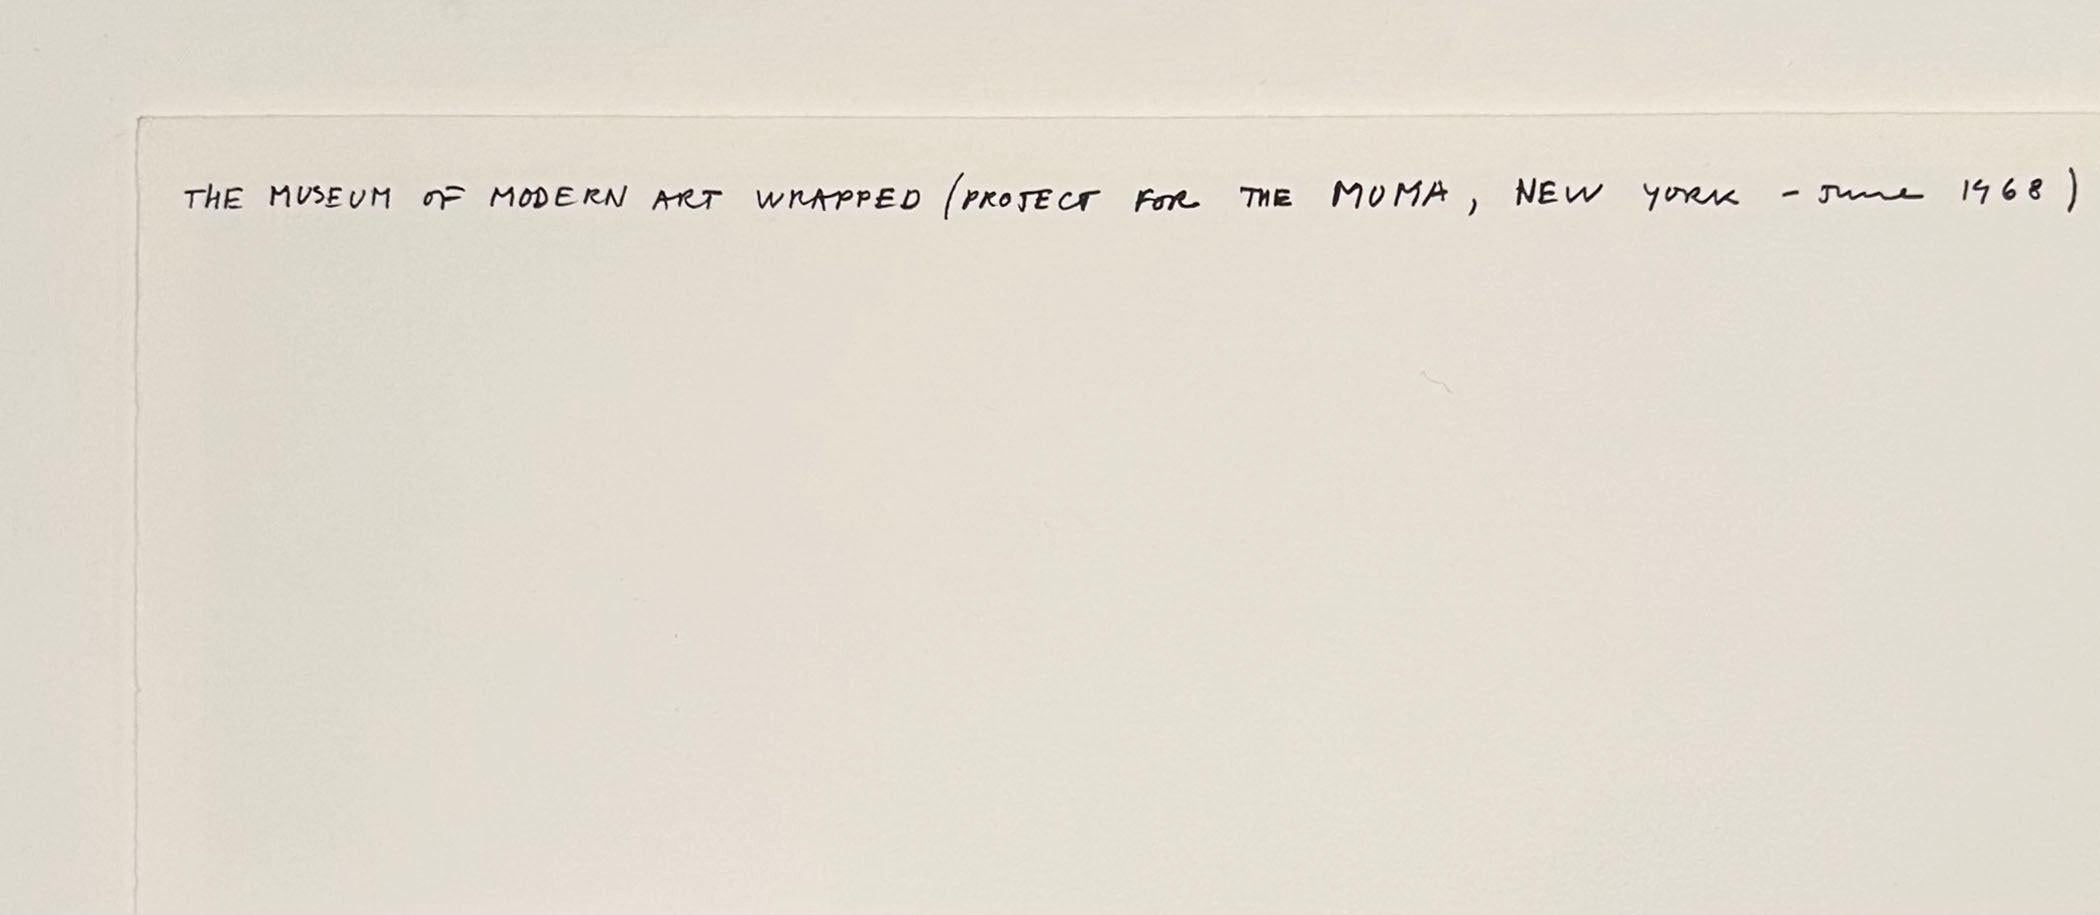 THE MUSEUM OF MODERN ART WRAPPED (PROJECT FOR THE MUMA, NEW YORK - June 1968)